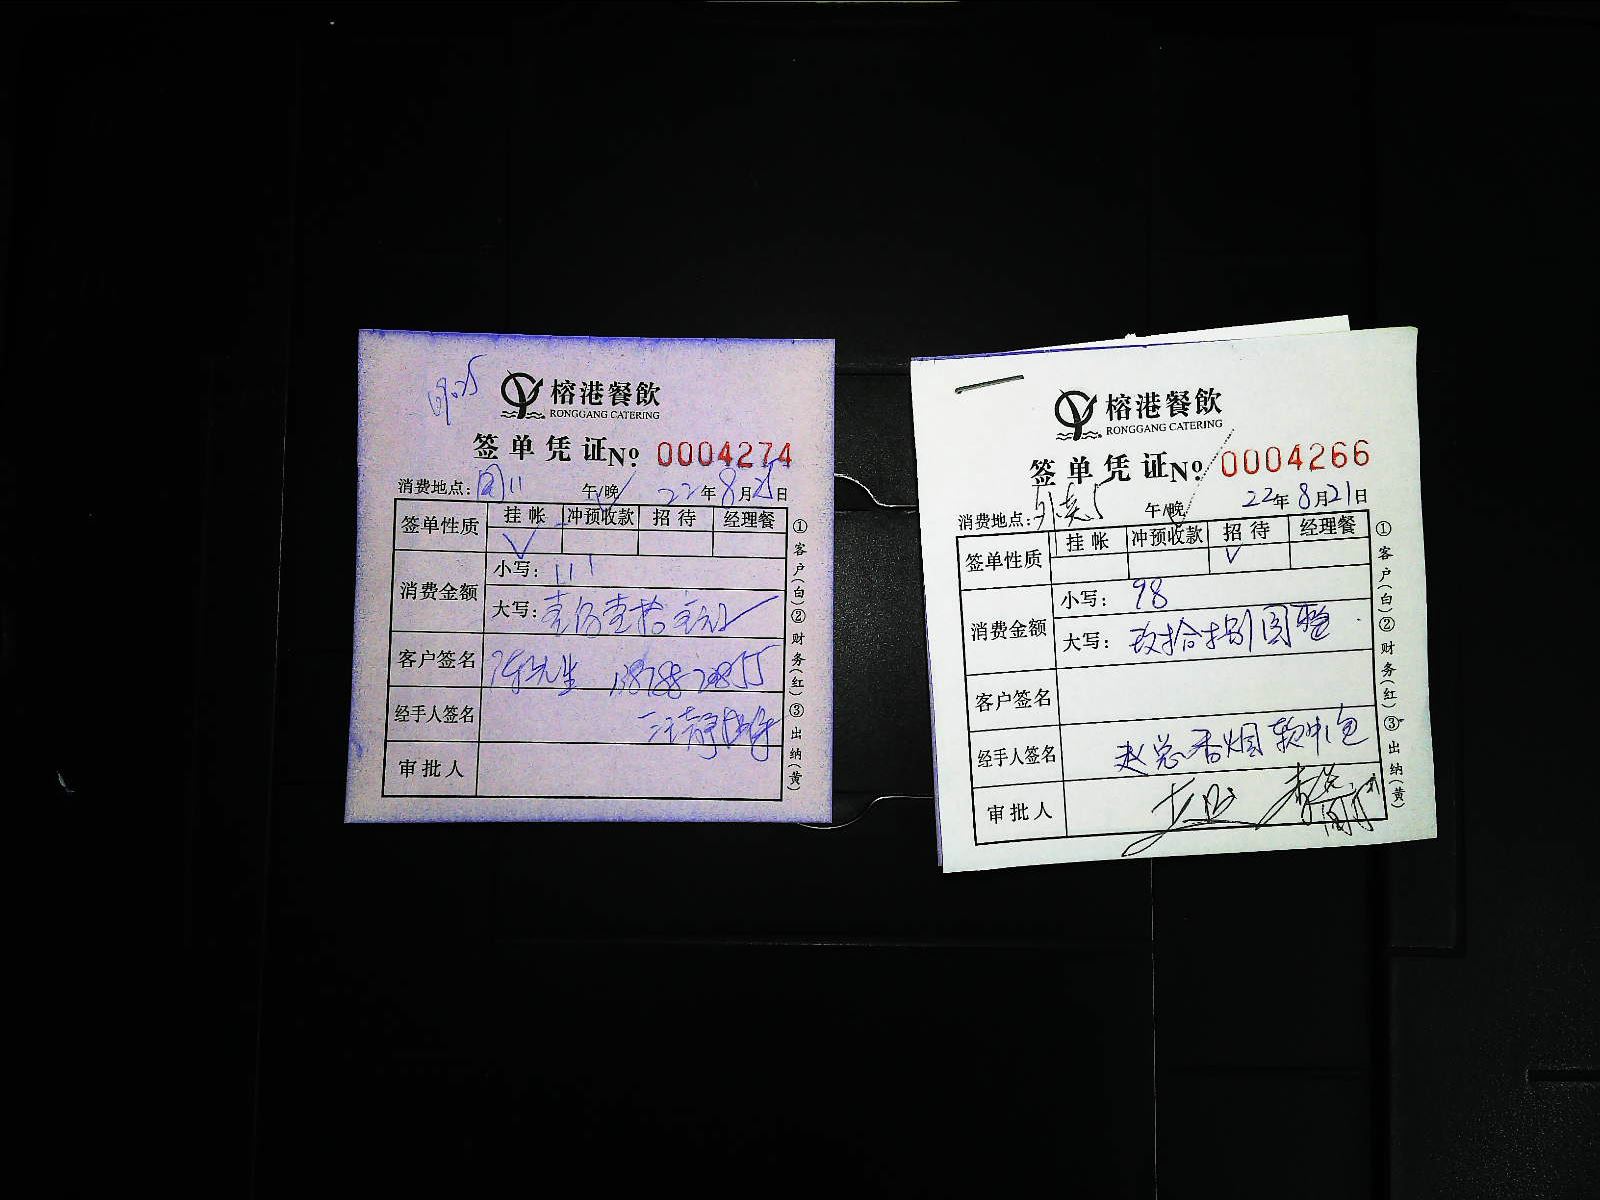 榕港餐飲
RONGGANG CATERING
签单凭证№ 0004274
消费地点: 午/晚 22年8月25日
签单性质 挂帐 冲预收款 招待 经理餐
消费金额
小写: 111
大写: 壹佰壹拾壹元
客户签名 陈先生
经手人签名
审批人
①客户(白)②财务(红)③出纳(黄)
榕港餐飲
RONGGANG CATERING
签单凭证№ 0004266
消费地点: 午/晚 22年8月21日
签单性质 挂帐 冲预收款 招待 经理餐
消费金额
小写: 98
大写: 玖拾捌圆整
客户签名
经手人签名 赵总香烟软中1包
审批人
①客户(白)②财务(红)③出纳(黄)